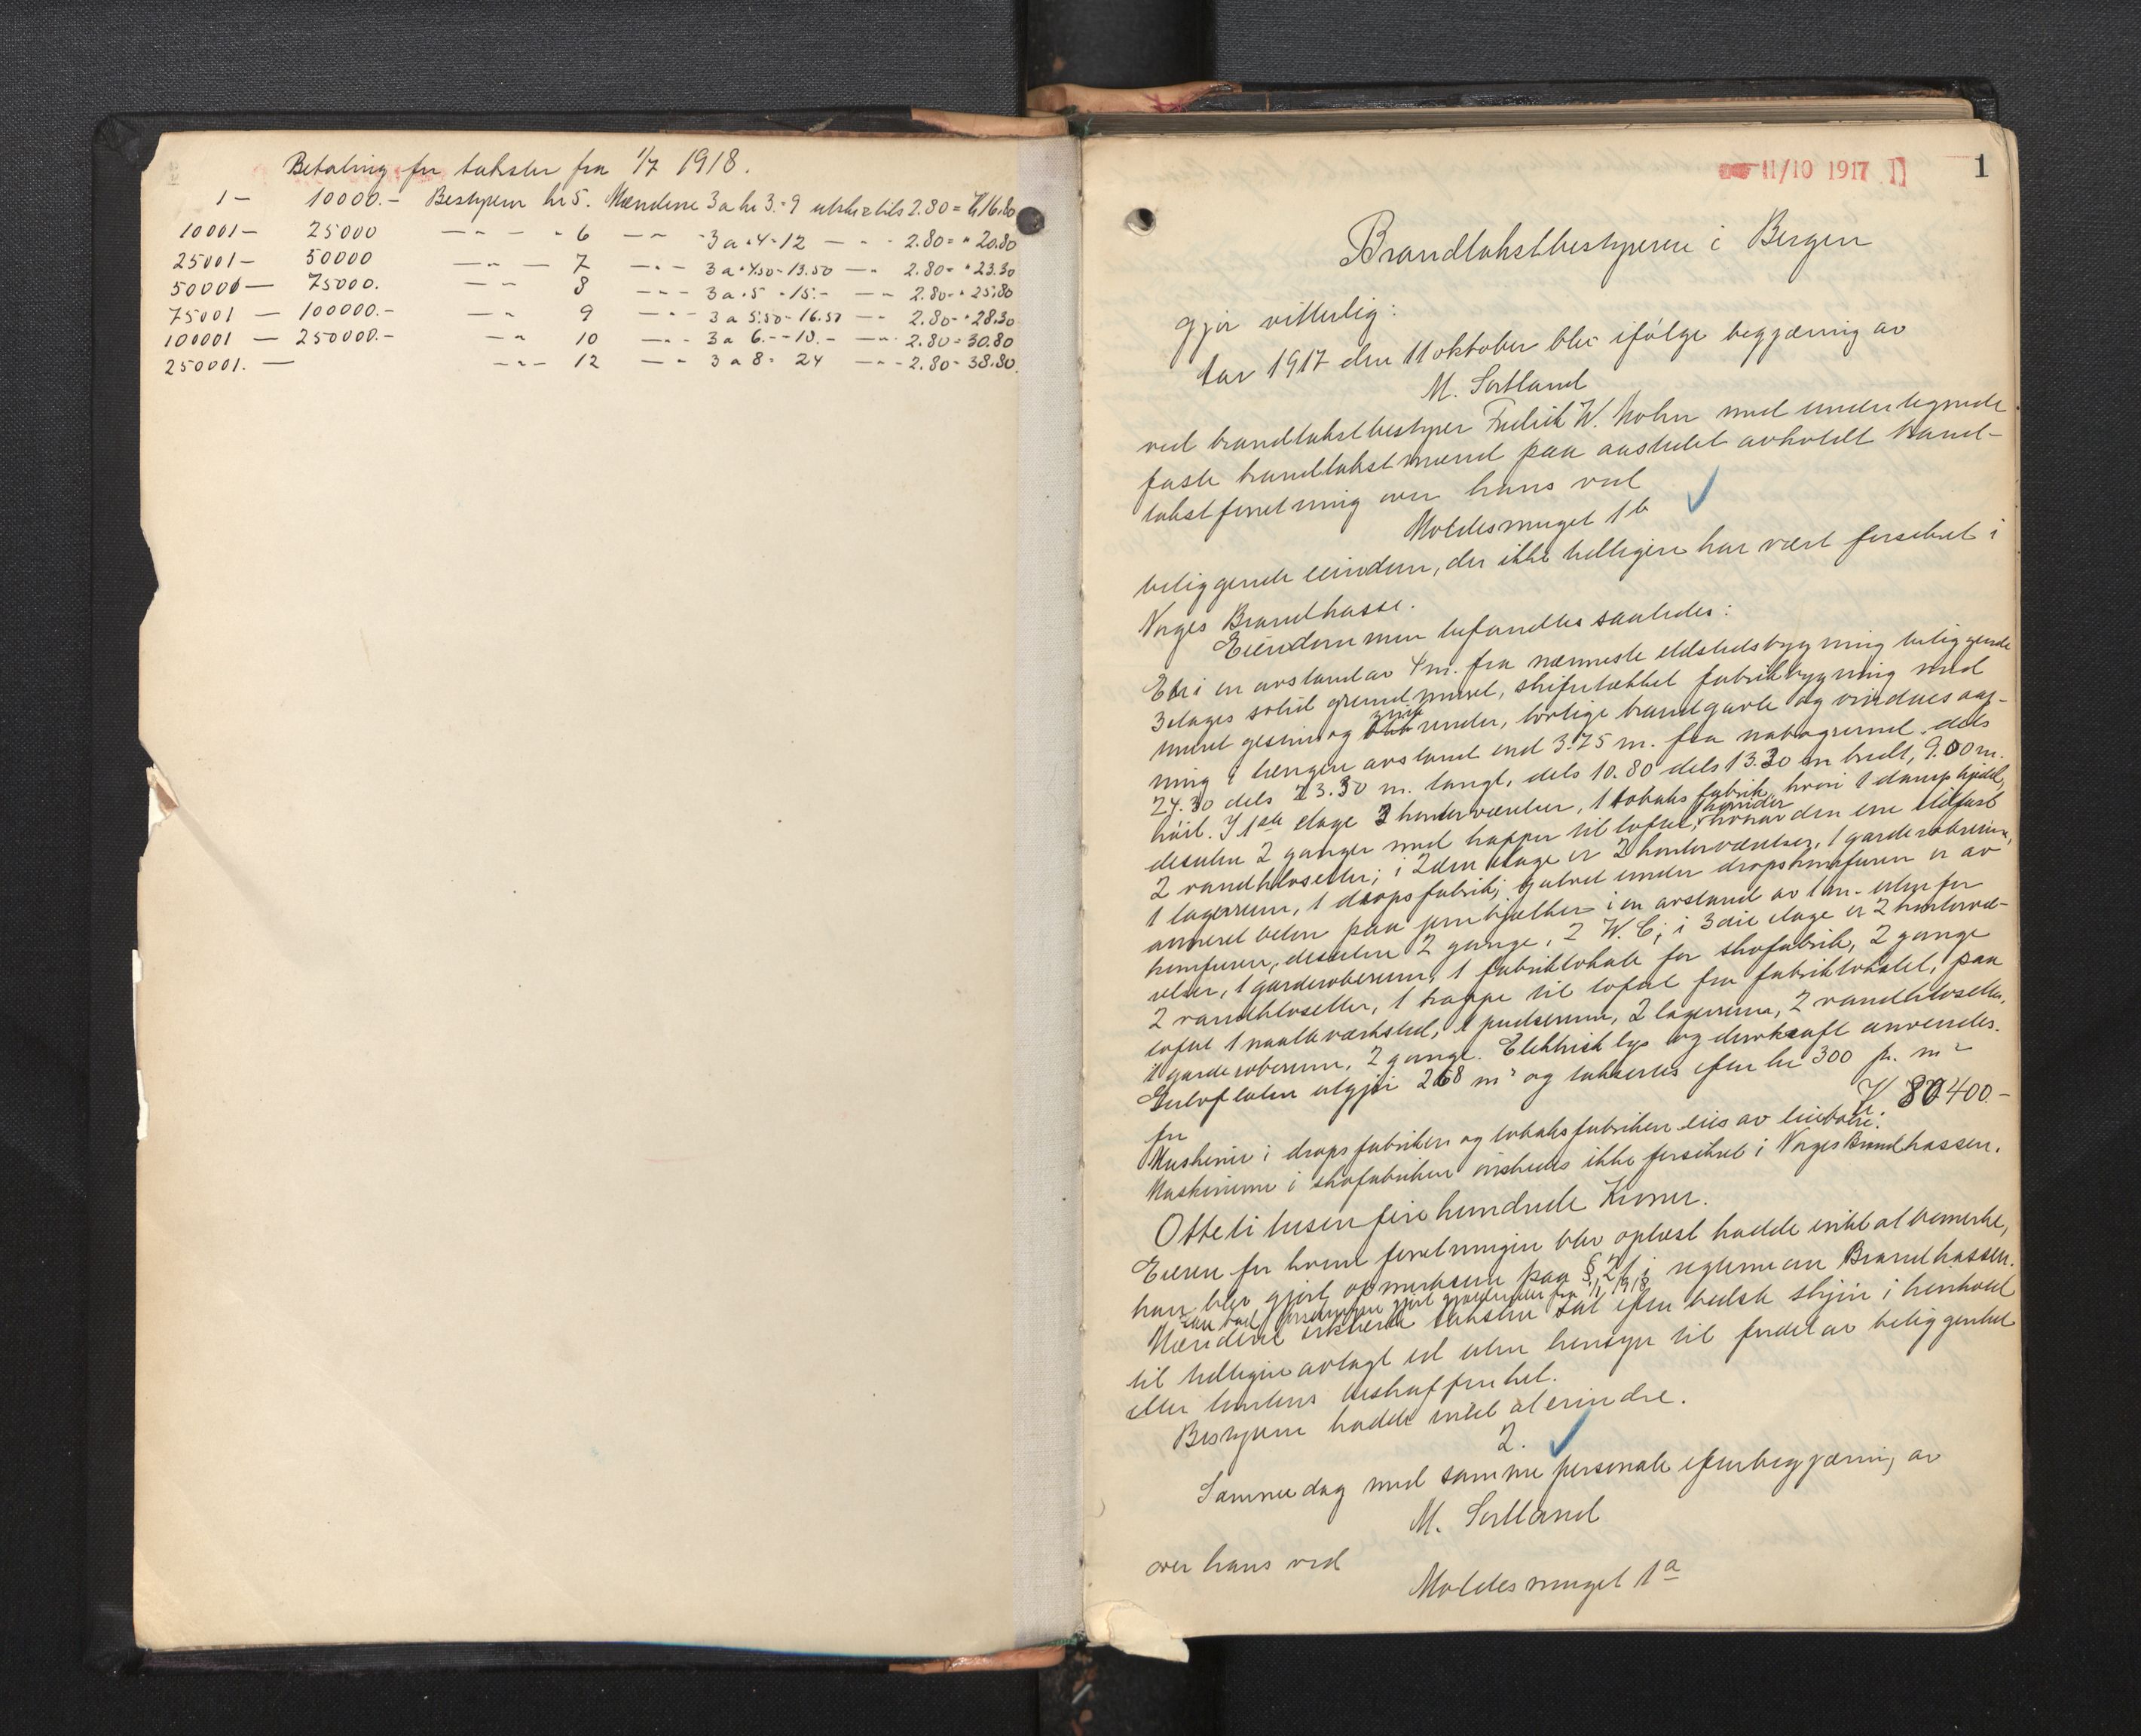 Betaling for takster fra 1/7 1918.
1 — 10000.- Bestyreren kr 5. Mændene 3 a kr 3.- 9 2.80 = Kr 16.80
10001 — 25000 — " — " 6 — " — 3 a " 4 - 12 — " - 2.80 = " 20.80
25001 — 50000 — " — 7 — " — 3 a " 4.50 - 13.50 — " 2.80 = " 23.30
50001 — 75000. — " — 8 — " — 3 a " 5 - 15.- — " 2.80 - " 25.80
75001 — 100000.- — " 9 — " — 3 a 5.50 - 16.50 — " 2.80 - " 28.30
100001 — 250000.- — " 10 — " - 3 a 6.- - 18.- — " 2.80 = 30.80
250001. — — " — 12 — " 3 a 8 = 24 — " - 2.80 - 38.80
11/10 1917 1
Brandtakstbestyreren i Bergen
gjør vitterlig:
Aar 1917 den 11 oktober blev ifølge begjæring av
M. Sortland
ved brandtakstbestyrer Fredrik W. Mohn med undertegnede
faste brandtakstmænd paa aastedet avholdt brand-
takstforretning over hans ved
Moldesmuget 1b
beliggende eiendom, der ikke tidligere har vært forsikret i
Norges Brandkasse.
Eiendommen befandtes saaledes:
En i en avstand av 4 m. fra nærmeste ildstedsbygning beliggende
3 etages solid grundmuret, skifertækket fabrikbygning med
muret gesims og zink render, lovlige brandgavle og vinduesaap-
ning i længere avstand end 3.75 m. fra nabogrund. dels
24.30 dels 23.30 m. langt, dels 10.80 dels 13.30 m bredt, 9.00 m.
høit. I 1ste etage 3 kontorværelser, 1 tobaks fabrik, hvori 1 dampkjedel,
desuten 2 ganger med trapper til loftet, hvorav den ene ildfast
2 vandklosetter; i 2den etage er 2 kontorværelser, 1 garderoberum,
1 lagerrum, 1 dropsfabrik, gulvet under dropskomfuren er av
armeret beton paa jernbjælker i en avstand av 1 m. utenfor
komfuren, desuten 2 gange, 2 W.C; i 3die etage er 2 kontorvæ-
relser, 1 garderoberum, 1 fabriklokale for skofabrik, 2 gange
2 vandklosetter, 1 trappe til loftet fra fabriklokalet, paa
loftet 1 naatleværksted, 1 pudserum, 2 lagerrum, 2 vandklosetter,
1 garderoberum, 2 gange. Elektrisk lys og drivkraft anvendes.
Gulvflaten utgjør 268 m² og takseres efter kr 300 pr. m²
for Kr. 80400.-
Maskiner i dropsfabriken og tobaksfabriken eies av leieboere.
Maskinerne i skofabriken ønskedes ikke forsikret i Norges Brandkassen.
Otteti tusen fire hundrede Kroner.
Eieren for hvem forretningen blev oplæst hadde intet at bemerke,
han blev gjort opmerksom paa § 21 i reglerne om Brandkassen.
den bad forsikringen gjort gjældende fra 1/1 1918
Mændene erklærte taksten sat efter bedste skjøn i henhold
til tidligere avlagt ed uten hensyn til fordel av beliggenhet
eller tomtens beskaffenhet.
Bestyreren hadde intet at erindre.
2.
Samme dag med samme personale efter begjæring av
M. Sortland
over hans ved
Moldesmuget 1a